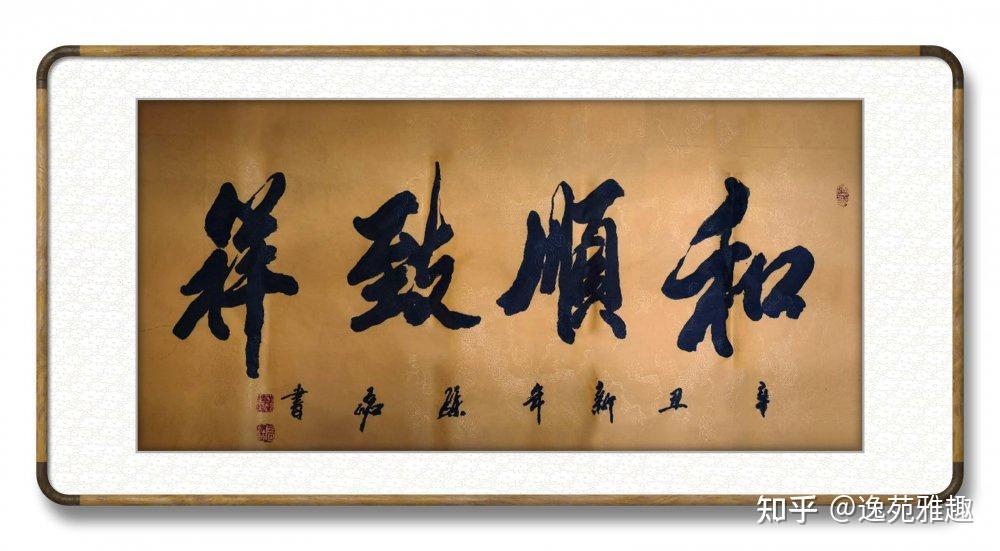 和順致祥
辛丑新年磊書
知乎 @逸苑雅趣